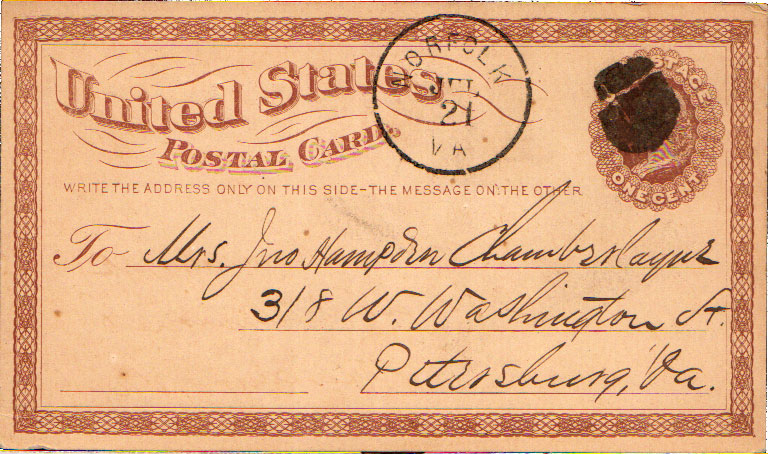 United States
POSTAL CARD.
NORFOLK
JUL
21
VA
POSTAGE
ONE CENT
WRITE THE ADDRESS ONLY ON THIS SIDE-THE MESSAGE ON THE OTHER
To Mrs. Jno Hampden Chamberlayne
318 W. Washington St.
Petersburg, Va.